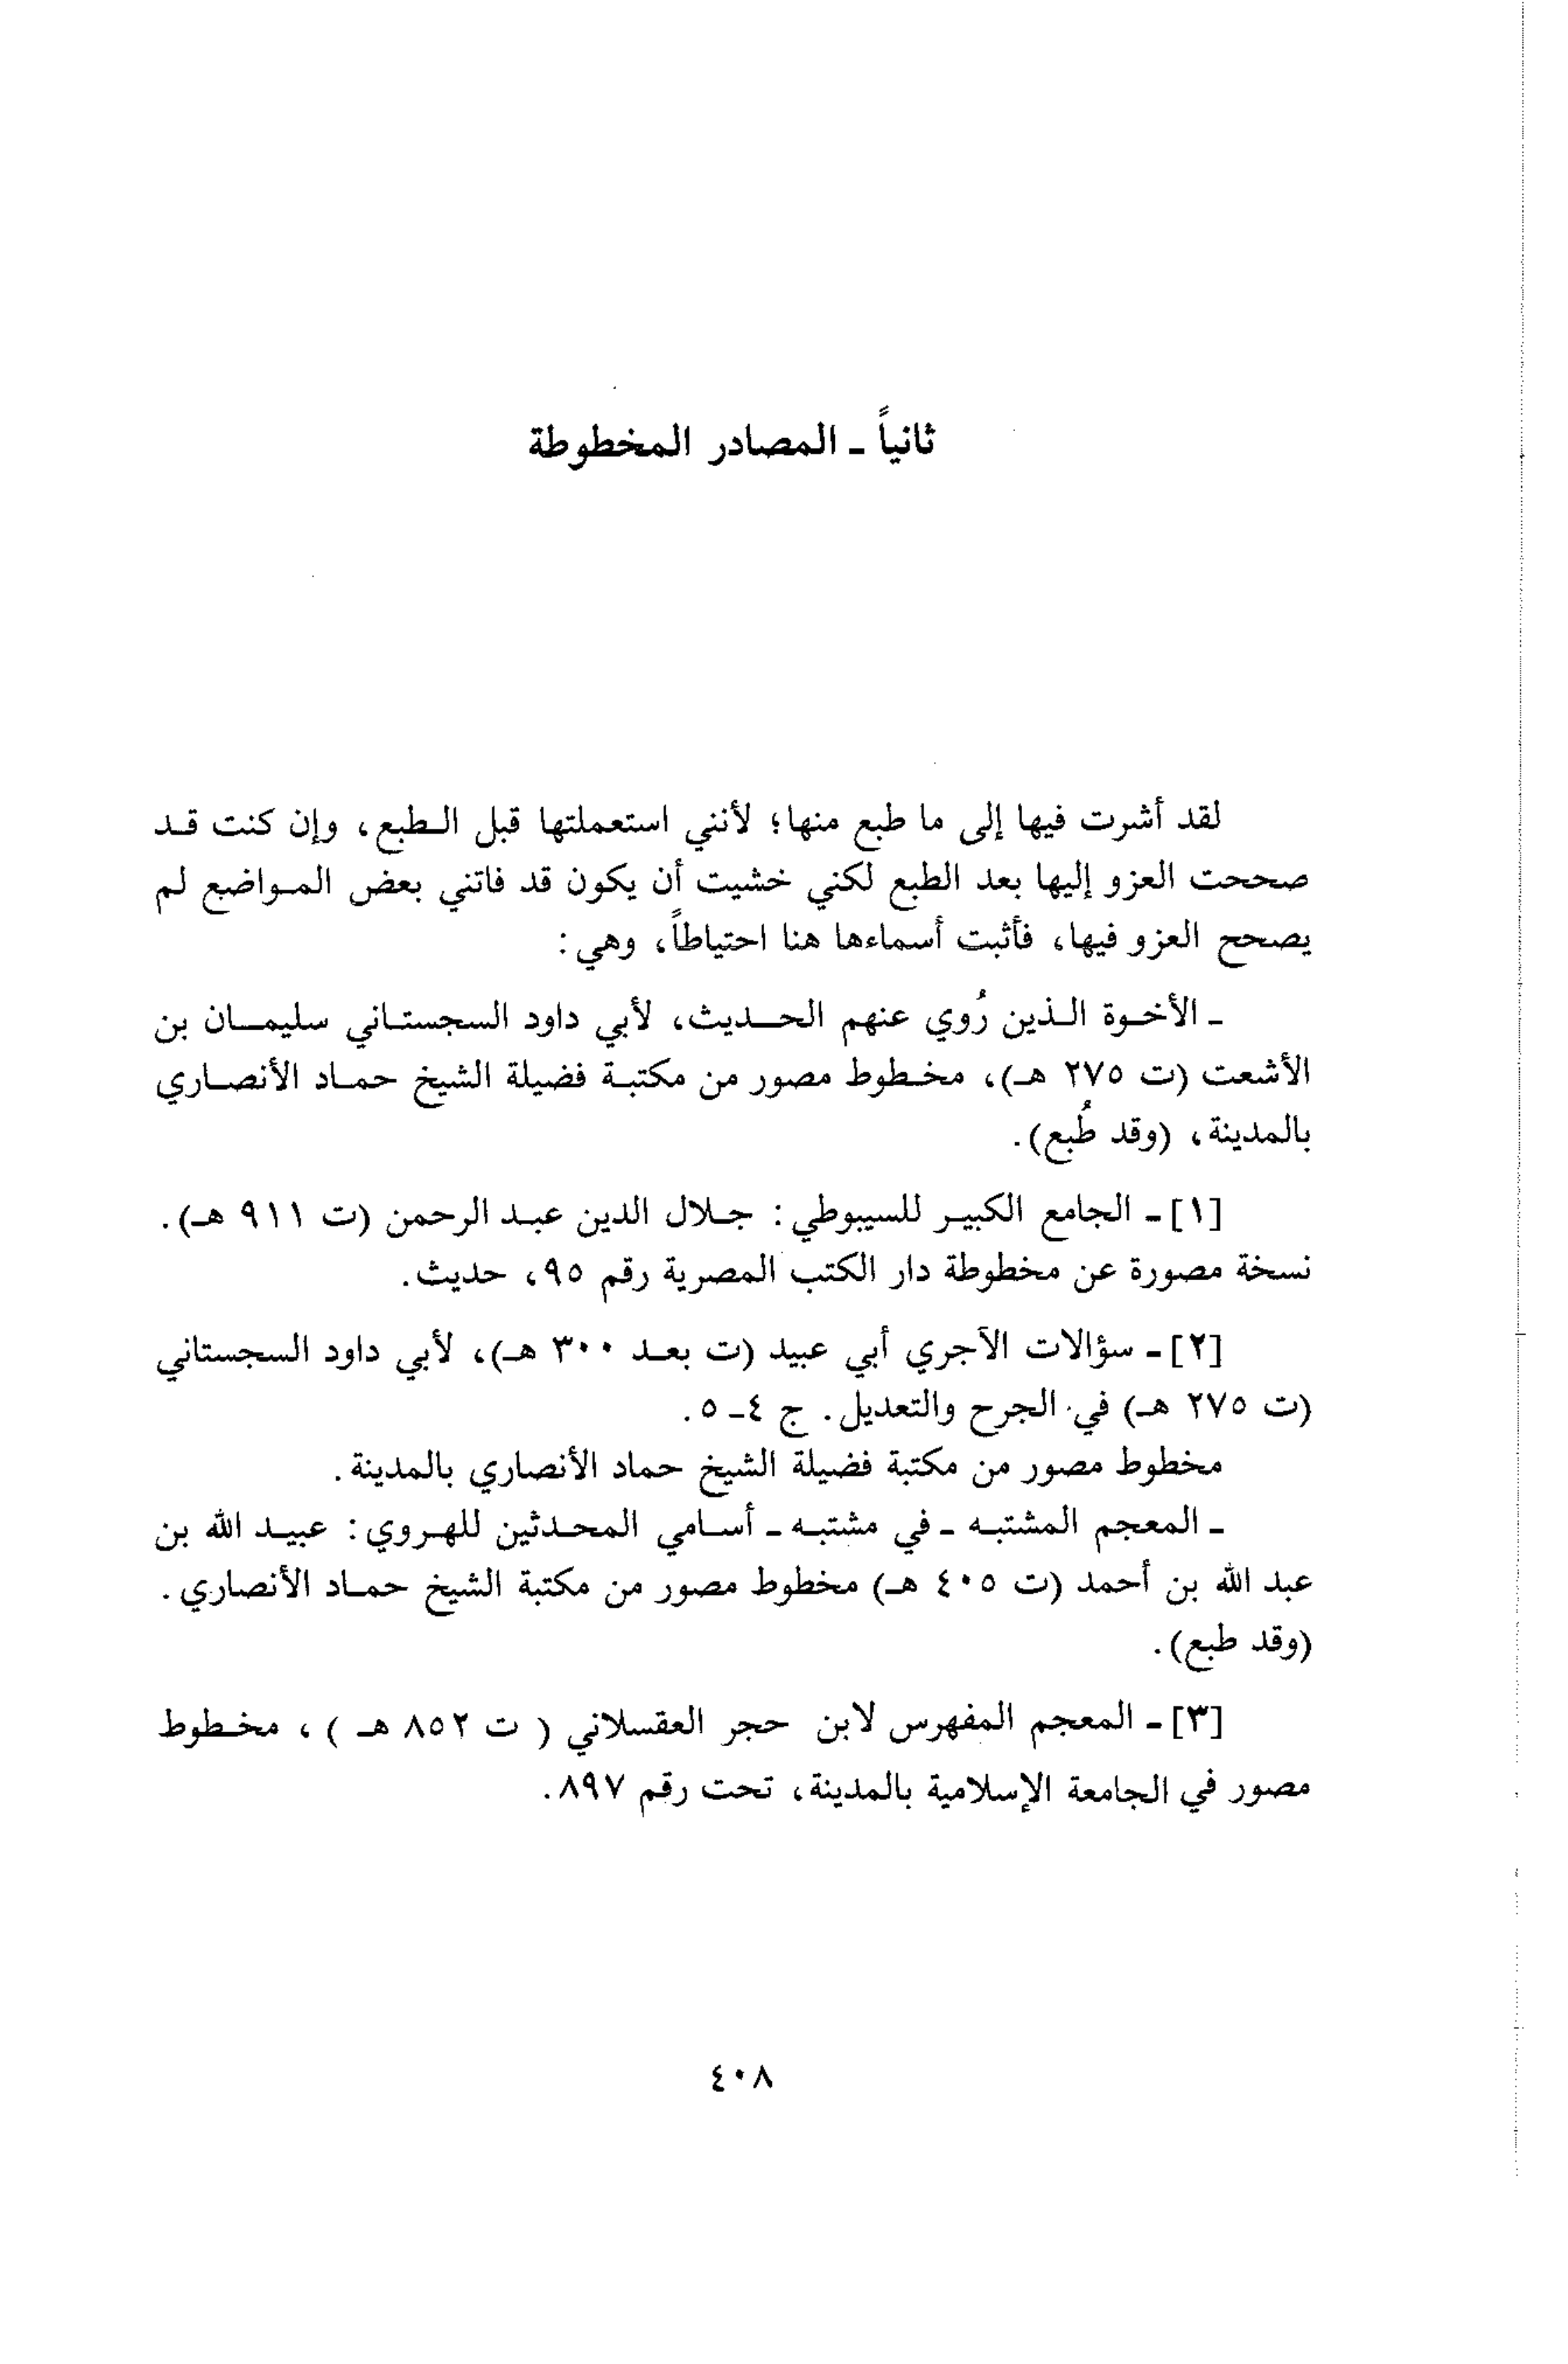 ثانياً ـ المصادر المخطوطة
لقد أشرت فيها إلى ما طبع منها؛ لأنني استعملتها قبل الطبع، وإن كنت قد
صححت العزو إليها بعد الطبع لكني خشيت أن يكون قد فاتني بعض المواضع لم
يصحح العزو فيها، فأثبت أسماءها هنا احتياطاً، وهي:
ـ الأخوة الذين رُوي عنهم الحديث، لأبي داود السجستاني سليمان بن
الأشعت (ت ٢٧٥ هـ)، مخطوط مصور من مكتبة فضيلة الشيخ حماد الأنصاري
بالمدينة، (وقد طُبع).
[١] ـ الجامع الكبير للسيبوطي: جلال الدين عبد الرحمن (ت ٩١١ هـ).
نسخة مصورة عن مخطوطة دار الكتب المصرية رقم ٩٥، حديث.
[٢] ـ سؤالات الآجري أبي عبيد (ت بعد ٣٠٠ هـ)، لأبي داود السجستاني
(ت ٢٧٥ هـ) في الجرح والتعديل. ج ٤ـ ٥.
مخطوط مصور من مكتبة فضيلة الشيخ حماد الأنصاري بالمدينة.
ـ المعجم المشتبه ـ في مشتبه ـ أسامي المحدثين للهروي: عبيد الله بن
عبد الله بن أحمد (ت ٤٠٥ هـ) مخطوط مصور من مكتبة الشيخ حماد الأنصاري.
(وقد طبع).
[٣] ـ المعجم المفهرس لابن حجر العقسلاني ( ت ٨٥٢ هـ ) ، مخطوط
مصور في الجامعة الإسلامية بالمدينة، تحت رقم ٨٩٧.
٤٠٨